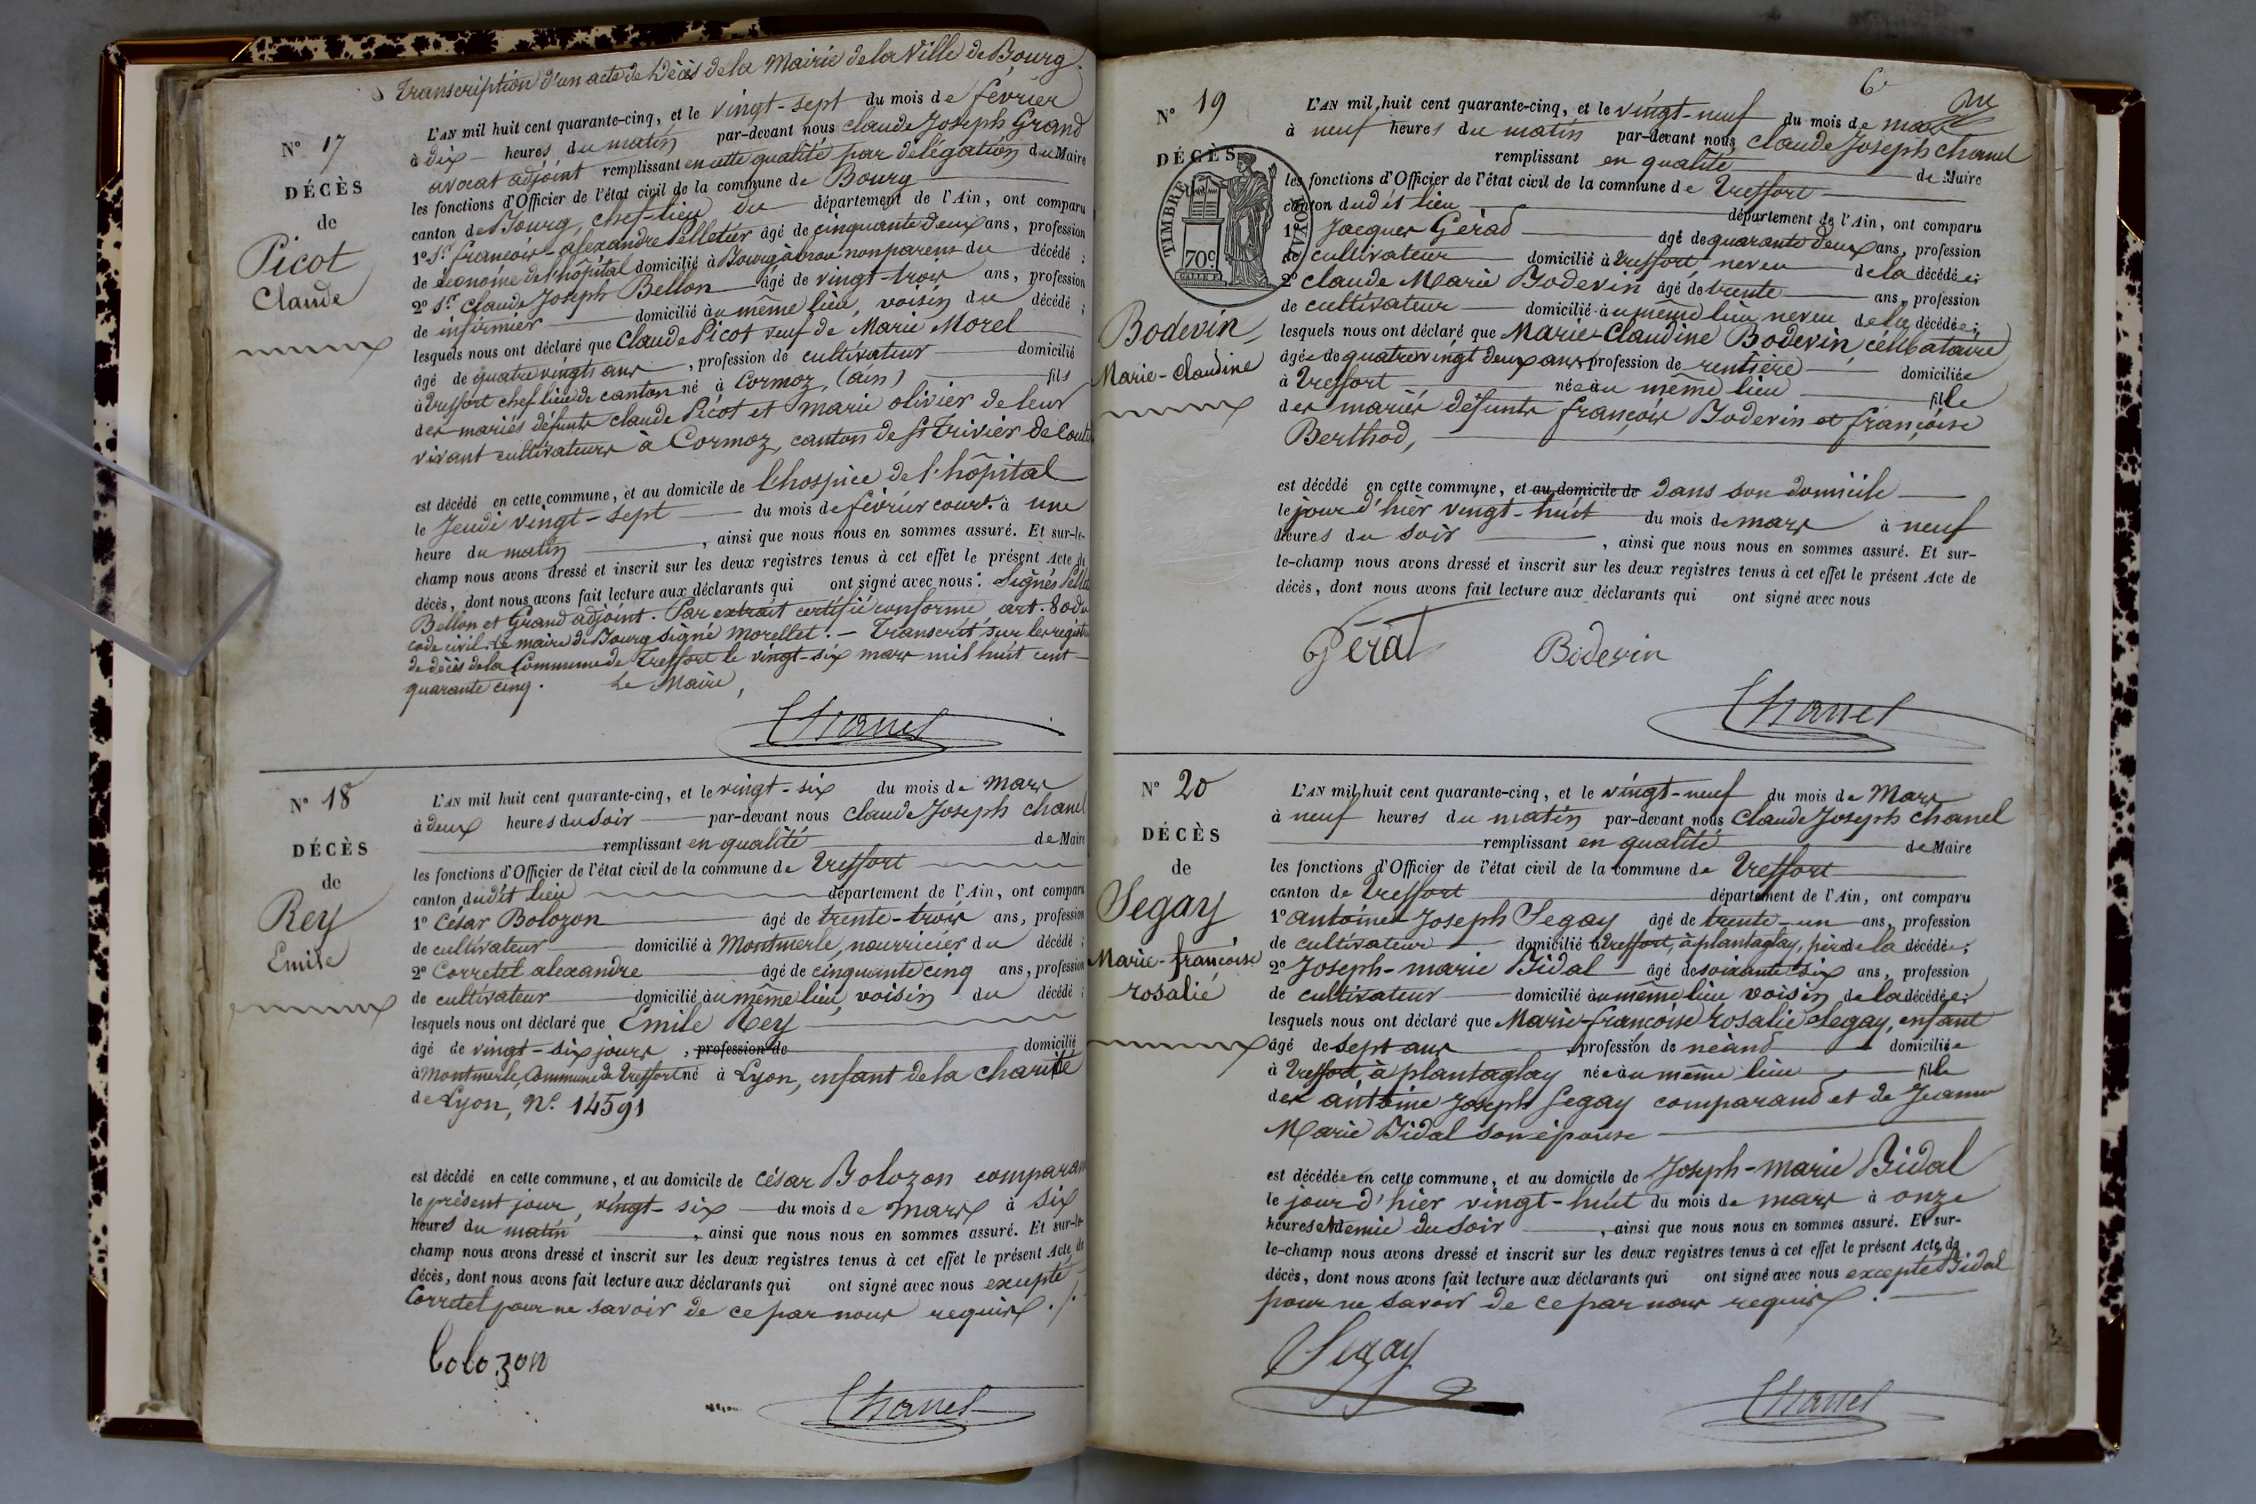 Transcription d'un acte de Décès de la Mairie de la Ville de Bourg.
N° 17
DÉCÈS
de
Picot
Claude
L'AN mil huit cent quarante-cinq, et le vingt-sept du mois de février
à dix heures du matin par-devant nous Claude Joseph Grand
avocat adjoint remplissant en cette qualité par délégation du Maire
les fonctions d'Officier de l'état civil de la commune de Bourg
canton de Bourg, chef-lieu du département de l'Ain, ont comparu
1° Sr. françois-alexandre Pelletier âgé de cinquante deux ans, profession
de économe de l'hôpital domicilié à Bourg à non parent du décédé ;
2° Sr. Claude Joseph Bellon âgé de vingt-trois ans, profession
de infirmier domicilié au même lieu, voisin du décédé ;
lesquels nous ont déclaré que Claude Picot veuf de Marie Morel
âgé de quatre vingts ans, profession de cultivateur domicilié
à Treffort chef lieu de canton né à Cormoz, (ain) fils
des mariés défunts Claude Picot et Marie olivier de leur
vivant cultivateurs à Cormoz, canton de St Trivier de Court
est décédé en cette commune, et au domicile de l'hospice de l'hôpital
le Jeudi vingt-sept du mois de février court. à une
heure du matin, ainsi que nous nous en sommes assuré. Et sur-le-
champ nous avons dressé et inscrit sur les deux registres tenus à cet effet le présent Acte de
décès, dont nous avons fait lecture aux déclarants qui ont signé avec nous. Signés Pellet
Bellon et Grand adjoint. Par extrait certifié conforme art. 80 du
code civil. Le maire de Bourg signé Morellet. - Transcrit sur les registres
de décès de la Commune de Treffort le vingt-six mars mil huit cent
quarante cinq. Le Maire,
Chanel
N° 18
DÉCÈS
de
Rey
Emile
L'AN mil huit cent quarante-cinq, et le vingt-six du mois de Mars
à deux heures du soir par-devant nous Claude Joseph Chanel
remplissant en qualité de Maire
les fonctions d'Officier de l'état civil de la commune de Treffort
canton dudit lieu département de l'Ain, ont comparu
1° César Bolozon âgé de trente-trois ans, profession
de cultivateur domicilié à Montmerle, nourricier du décédé ;
2° Corretel alexandre âgé de cinquante cinq ans, profession
de cultivateur domicilié au même lieu, voisin du décédé ;
lesquels nous ont déclaré que Emile Rey
âgé de vingt-six jours, profession de domicilié
à Montmerle, Commune de Treffort né à Lyon, enfant de la charité
de Lyon, N° 14591
est décédé en cette commune, et au domicile de César Bolozon comparan
le présent jour, vingt-six du mois de Mars à six
heures du matin, ainsi que nous nous en sommes assuré. Et sur-le-
champ nous avons dressé et inscrit sur les deux registres tenus à cet effet le présent Acte de
décès, dont nous avons fait lecture aux déclarants qui ont signé avec nous excepté
Corretel pour ne savoir de ce par nous requis ./.
bolozon
Chanel
6
N° 19
DÉCÈS
TIMBRE ROYAL
70 c
Bodevin
Marie-Claudine
L'AN mil huit cent quarante-cinq, et le vingt-neuf du mois de mars
à neuf heures du matin par-devant nous Claude Joseph Chanel
remplissant en qualité de Maire
les fonctions d'Officier de l'état civil de la commune de Treffort
canton dudit lieu département de l'Ain, ont comparu
1° Jacques Gérad âgé de quarante deux ans, profession
de cultivateur domicilié à Treffort, neveu de la décédée ;
2° Claude Marie Bodevin âgé de trente ans, profession
de cultivateur domicilié au même lieu neveu de la décédée ;
lesquels nous ont déclaré que Marie-Claudine Bodevin, célibataire
âgée de quatre vingt deux ans, profession de rentière domiciliée
à Treffort née au même lieu fille
des mariés défunts françois Bodevin et françoise
Berthod,
est décédé en cette commune, et au domicile de dans son domicile
le jour d'hier vingt-huit du mois de mars à neuf
heures du soir, ainsi que nous nous en sommes assuré. Et sur-
le-champ nous avons dressé et inscrit sur les deux registres tenus à cet effet le présent Acte de
décès, dont nous avons fait lecture aux déclarants qui ont signé avec nous
Gérat Bodevin
Chanel
N° 20
DÉCÈS
de
Segay
Marie-françoise
rosalie
L'AN mil huit cent quarante-cinq, et le vingt-neuf du mois de Mars
à neuf heures du matin par-devant nous Claude Joseph Chanel
remplissant en qualité de Maire
les fonctions d'Officier de l'état civil de la commune de Treffort
canton de Treffort département de l'Ain, ont comparu
1° antoine Joseph Segay âgé de trente-un ans, profession
de cultivateur domicilié à Treffort, à plantaglay, père de la décédée ;
2° Joseph-marie Bidal âgé de soixante six ans, profession
de cultivateur domicilié au même lieu voisin de la décédée ;
lesquels nous ont déclaré que Marie-françoise rosalie Segay, enfant
âgé de sept ans, profession de néand domiciliée
à Treffort, à plantaglay née au même lieu fille
des antoine Joseph Segay comparand et de Jeanne
Marie Bidal son épouse
est décédée en cette commune, et au domicile de Joseph-marie Bidal
le jour d'hier vingt-huit du mois de mars à onze
heures et demie du soir, ainsi que nous nous en sommes assuré. Et sur-
le-champ nous avons dressé et inscrit sur les deux registres tenus à cet effet le présent Acte de
décès, dont nous avons fait lecture aux déclarants qui ont signé avec nous excepté Bidal
pour ne savoir de ce par nous requis.
Segay
Chanel